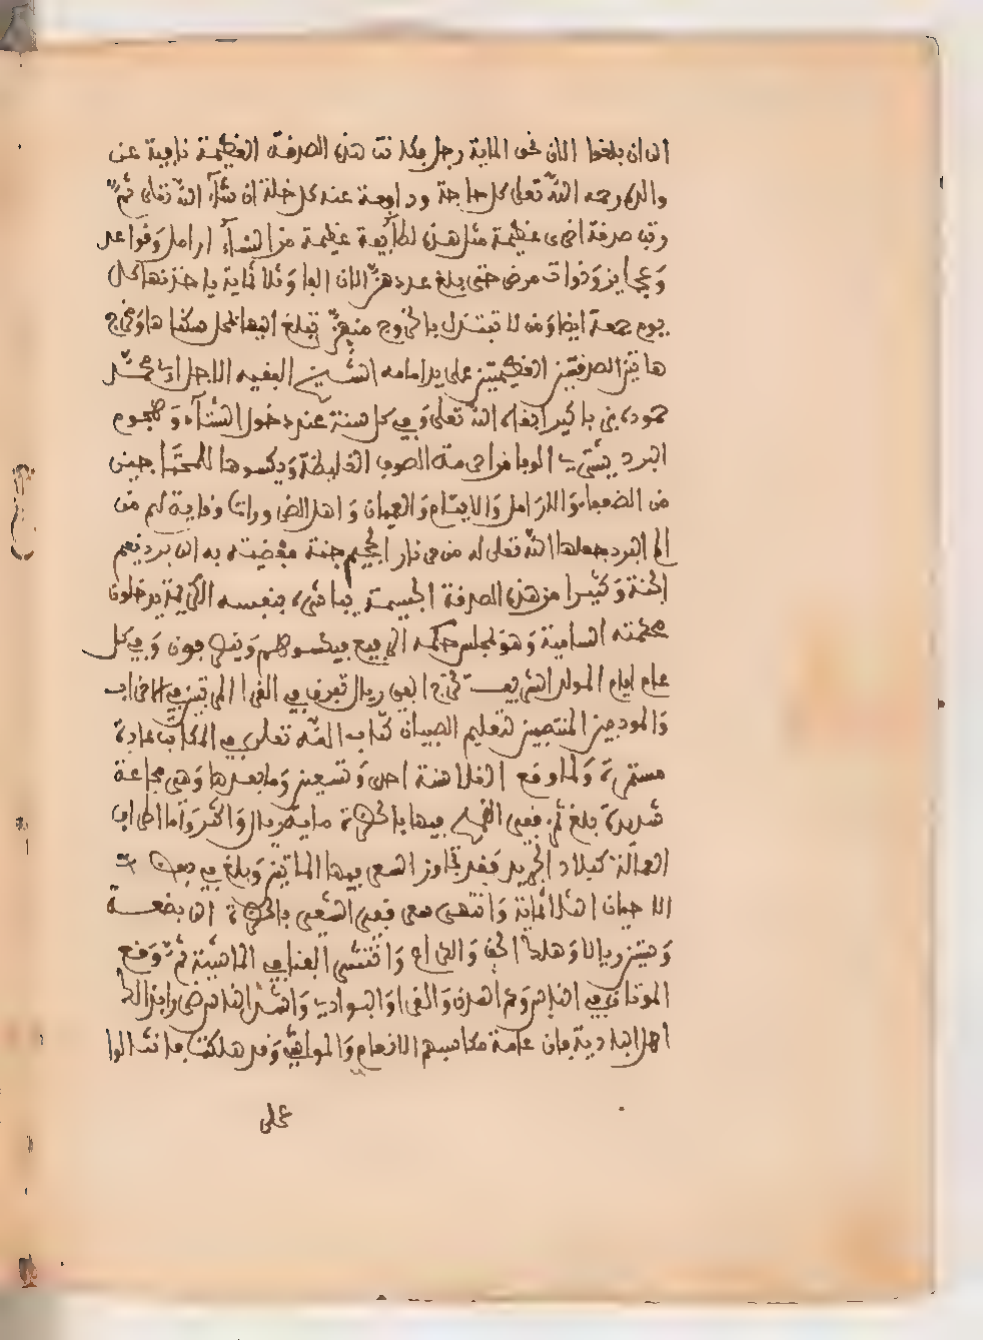 الى ان بلغوا الان نحو الماية رجل وكانت هذه الصدقة العظيمة نايبة عن
والده رحمه الله تعلى كل حاجة ودافعة عنه كل خلة ان شآء الله تعلى ثم
رتب صدقة اخرى عظيمة مثل هذه لطآيفة عظيمة من النسآء ارامل وقواعد
وعجايز وذوات مرض حتى بلغ عددهن الان الفا وثلاثماية ياخذنها كل
يوم جمعة ايضا ومن لا تبتذل بالخروج منهن تبلغ اليها بمحل سكناها وتخرج
هاتين الصدقتين العظيمتين على يد امامه الشيخ الفقيه الاجل محمد
حمودة بن باكير ابقاه الله تعلى وفي كل سنة عند دخول الشتآء وهجوم
البرد يشتري الوفا من احرمة الصوف الغليظة ويكسوها للمحتاجين
من الضعفا والارامل والايتام والعميان واهل الضرورات وقاية لهم من
الم البرد جعلها الله تعلى له من حر نار الجحيم جنة مفضية به الى برد نعيم
الجنة وكثيرا من هذه الصدقة الجسيمة يباشره بنفسه الكريمة يدخلون
محكمته السامية وهو بمجلس حكمه الرفيع فيكسوهم وينصرفون وفي كل
عام ايام المولد الشريف تخرج الفي ريال تفرق في القرا المرتبين في الاحزاب
والمودبين المنتصبين لتعليم الصبيان كتاب الله تعلى في المكاتب عادة
مستمرة ولما وقع الغلا سنة احدى وتسعين وما بعدها وهي مجاعة
شديدة بلغ ثمن قفيز القمح فيها بالحاضرة ماية ريال واكثر واما اطراف
العمالة كبلاد الجريد فقد تجاوز السعر فيها الماتين وبلغ في بعض
الاحيان الثلاثماية وانتهى سعر قفيز الشعير بالحاضرة الى بضعة
وستين ريالا وهلك الخف والكراع وانتشر الفنا في الماشية ثم وقع
الموتان في الناس وعم المدن والقرا والبوادي واشد الناس ضرا بذلك
اهل البادية فان عامة مكاسبهم الانعام والمواشي وقد هلكت فانثالوا
على